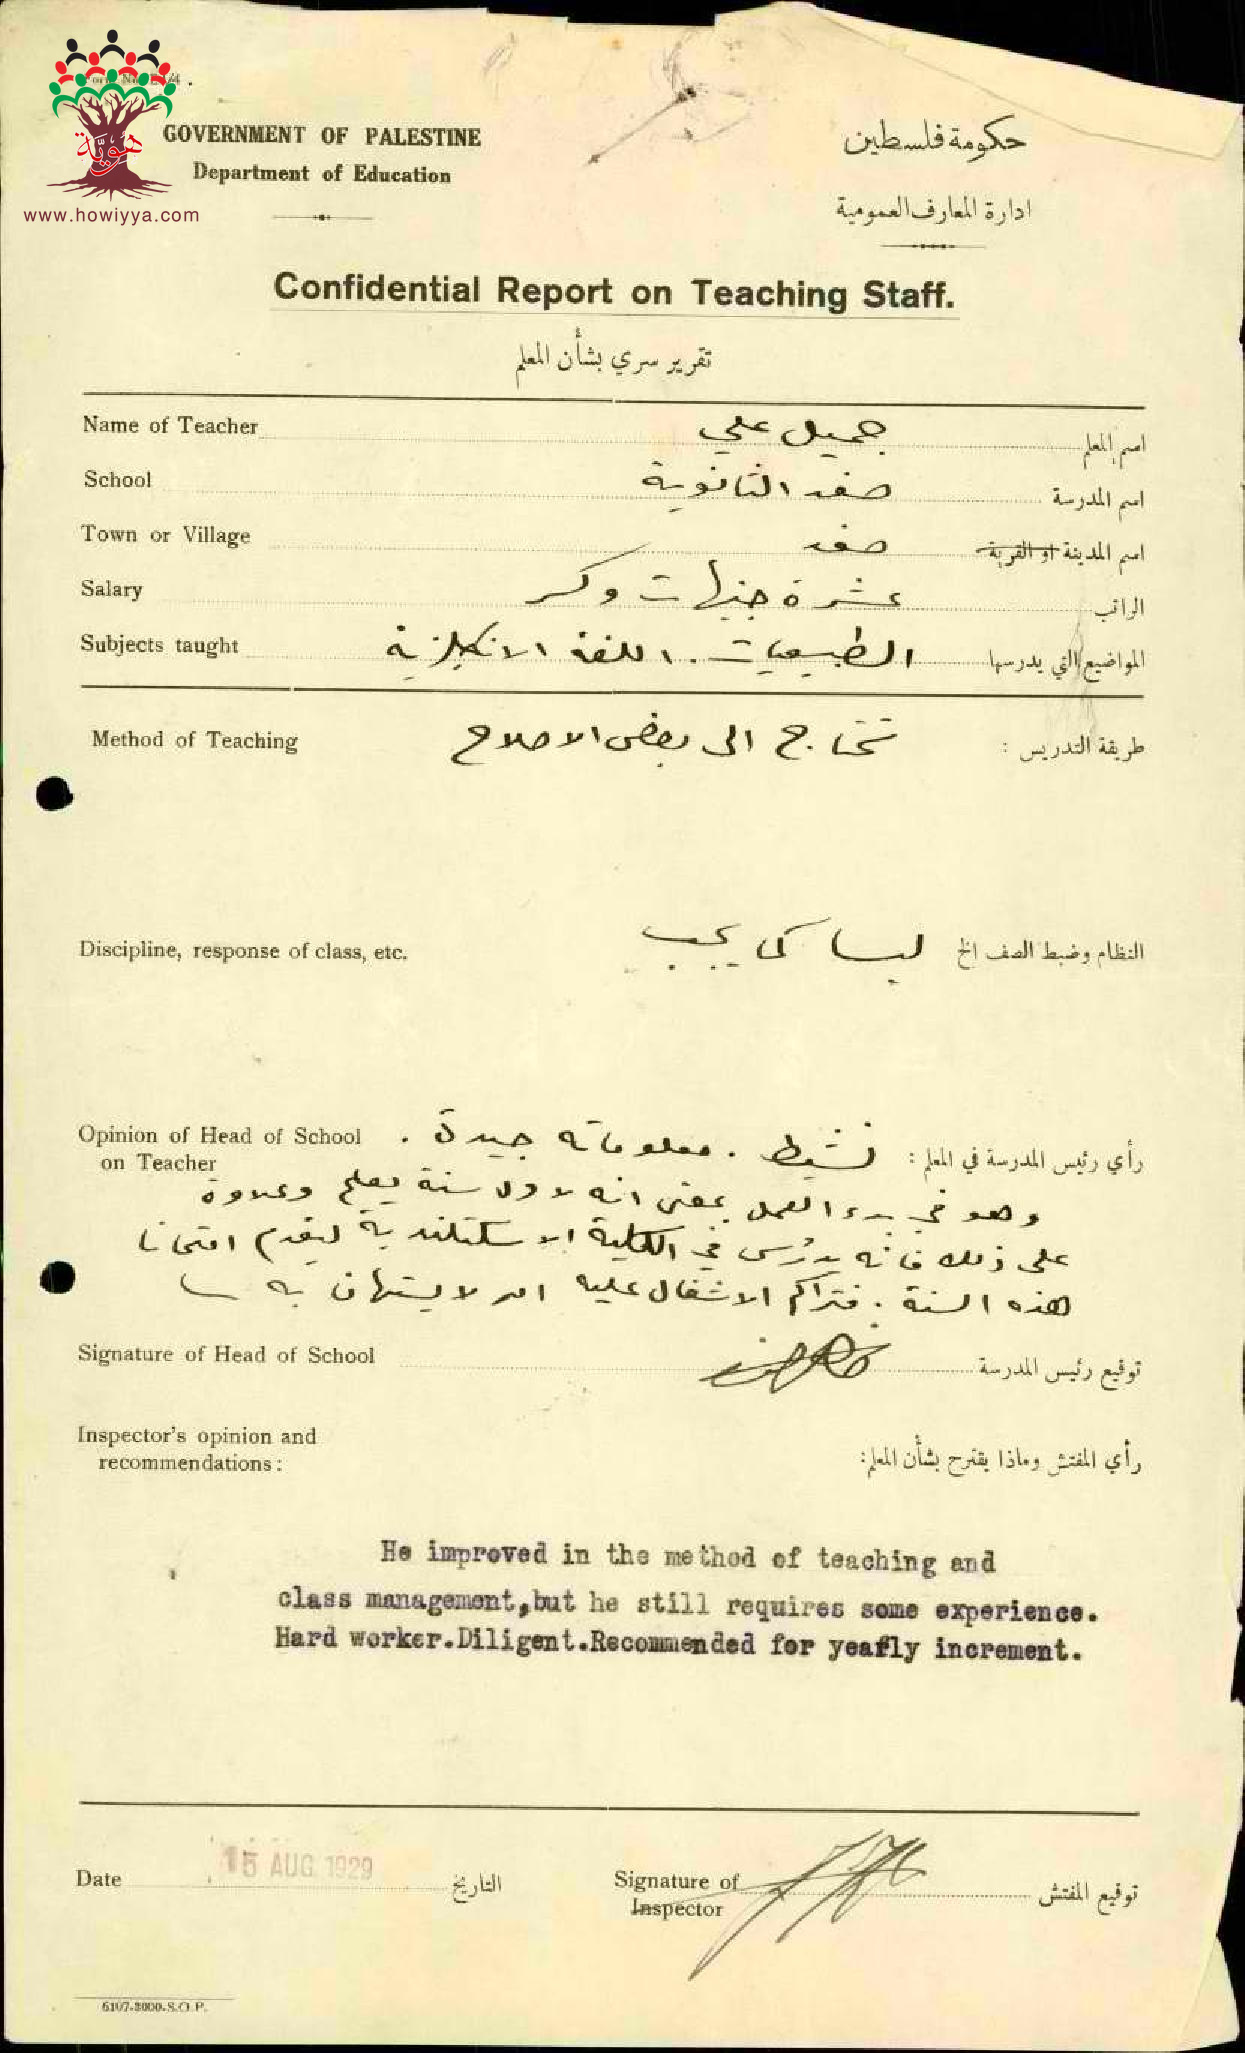 هوية
www.howiyya.com
GOVERNMENT OF PALESTINE
Department of Education
حكومة فلسطين
ادارة المعارف العمومية
Confidential Report on Teaching Staff.
تقرير سري بشأن المعلم
Name of Teacher جميل علي اسم المعلم
School صفد الثانوية اسم المدرسة
Town or Village صفد اسم المدينة او القرية
Salary عشرة جنيهات وكسر الراتب
Subjects taught الطبيعيات. اللغة الانكليزية المواضيع التي يدرسها
Method of Teaching تحتاج الى بعض الاصلاح طريقة التدريس :
Discipline, response of class, etc. ليسا كما يجب النظام وضبط الصف الخ
Opinion of Head of School
on Teacher
رأي رئيس المدرسة في المعلم : نشيط . معلوماته جيدة .
وهو في بدء العمل بمعنى انه لاول سنة يعلم وعلاوة
على ذلك فانه يدرُس في الكلية الاسكتلندية ليقدم امتحانا
هذه السنة . فتراكم الاشغال عليه امر لا يستهان به
Signature of Head of School توقيع رئيس المدرسة
Inspector's opinion and
recommendations :
رأي المفتش وماذا يقترح بشأن المعلم:
He improved in the method of teaching and
class management,but he still requires some experience.
Hard worker.Diligent.Recommended for yearly increment.
Date 15 AUG 1929 التاريخ
Signature of
Inspector
توقيع المفتش
6107-3000-S.O.P.